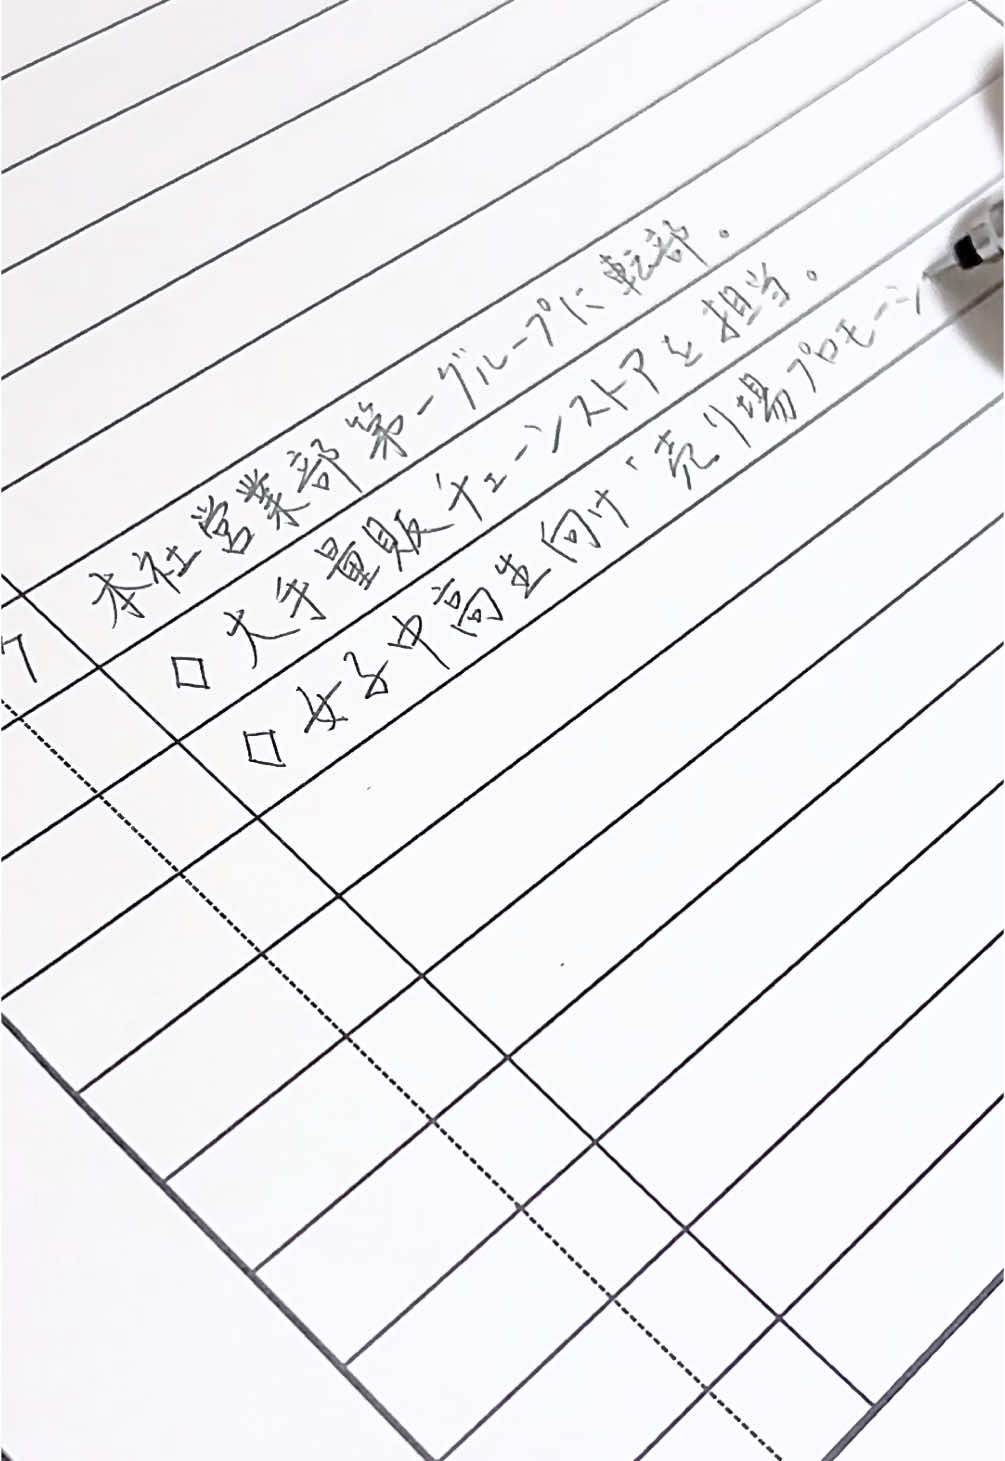 7
本社営業部第一グループに転部。
◇ 大手量販チェーンストアを担当。
◇ 女子中高生向け「売り場プロモーシ